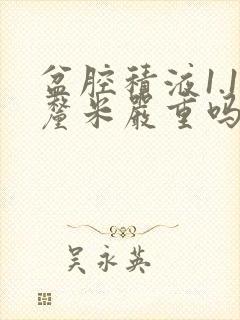 盆腔积液1.1
釐米严重吗
吴永英